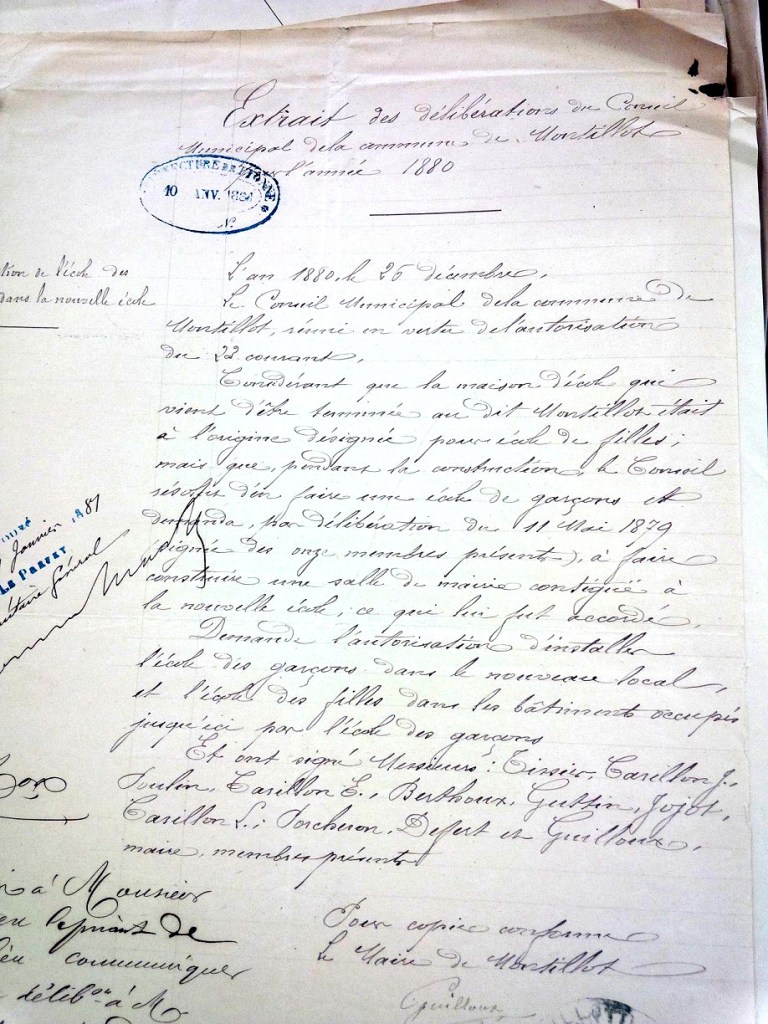 Extrait des délibérations du Conseil
Municipal de la commune de Montillot
l'année 1880
PRÉFECTURE DE L'YONNE
10 JANV. 1881
N°
tion de l'école des
dans la nouvelle école
L'an 1880, le 26 décembre,
Le Conseil Municipal de la commune de
Montillot, réuni en vertu de l'autorisation
du 22 courant,
Considérant que la maison d'école qui
vient d'être terminée au dit Montillot était
à l'origine désignée pour école de filles;
mais que, pendant la construction, le Conseil
résolut d'en faire une école de garçons et
demanda, par délibération du 11 Mai 1879
(signée des onze membres présents), à faire
construire une salle de mairie contiguë à
la nouvelle école, ce qui lui fut accordé,
Demande l'autorisation d'installer
l'école des garçons dans le nouveau local,
et l'école des filles dans les bâtiments occupés
jusqu'ici par l'école des garçons
Et ont signé Messieurs: Tissier, Carillon J.,
Poulin, Carillon E., Berthoux, Guttin, Jojot,
Carillon L., Porcheron, Defert et Guilloux,
maire, membres présents.
Janvier 1881
LE PREFET
Secrétaire Général
à Monsieur
en le priant de
communiquer
délib.on à M.
Pour copie conforme
Le Maire de Montillot
Guilloux